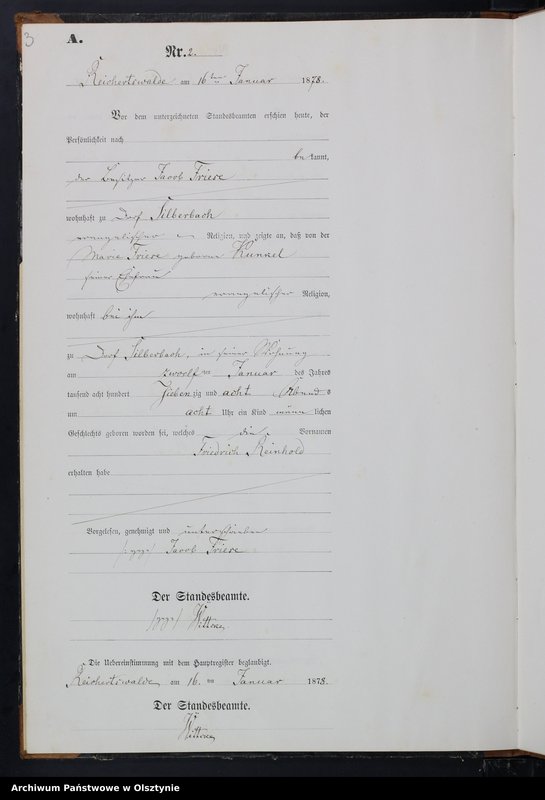 3
A.
Nr. 2.
Reichertswalde am 16ten Januar 1878.
Vor dem unterzeichneten Standesbeamten erschien heute, der
Persönlichkeit nach
be kannt,
der Besitzer Jacob Friese
wohnhaft zu Dorf Silberbach
evangelischer Religion, und zeigte an, daß von der
Marie Friese geborene Kunkel
seiner Ehefrau
evangelischer Religion,
wohnhaft bei ihm
zu Dorf Silberbach, in seiner Wohnung
am zwölften Januar des Jahres
tausend acht hundert siebenzig und acht Abends
um acht Uhr ein Kind männlichen
Geschlechts geboren worden sei, welches die Vornamen
Friedrich Reinhold
erhalten habe
Vorgelesen, genehmigt und unterschrieben
Jacob Friese
Der Standesbeamte.
Die Uebereinstimmung mit dem Hauptregister beglaubigt.
Reichertswalde am 16. ten Januar 1878.
Der Standesbeamte.
Archiwum Państwowe w Olsztynie